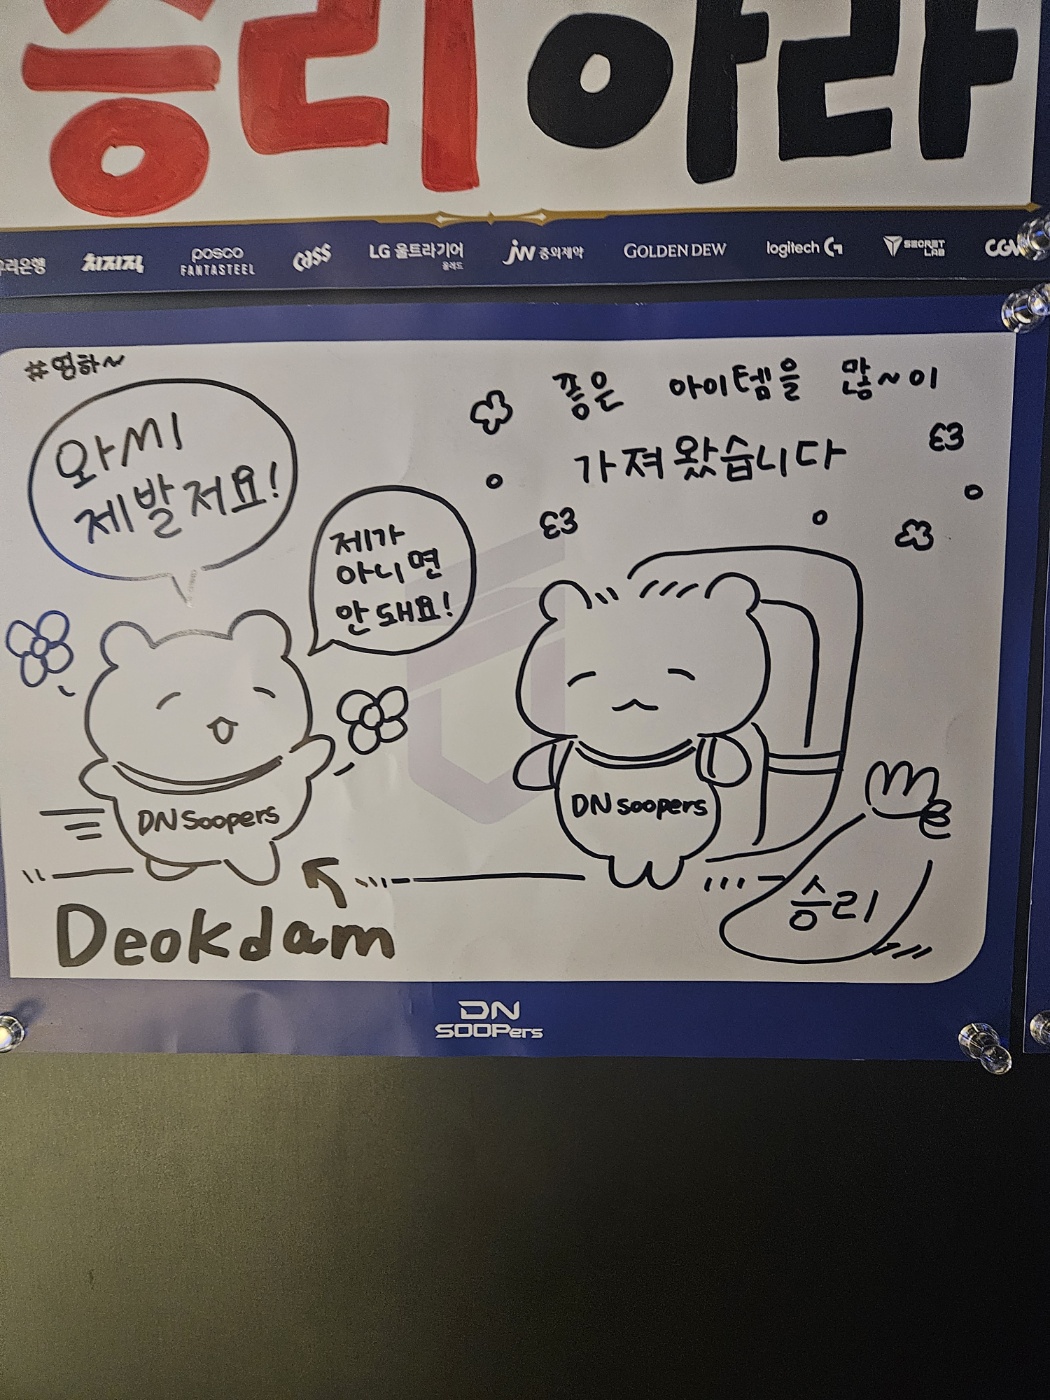 승리 아라
우리은행 치지직 posco FANTASTEEL cass LG 울트라기어 올레드 JW 중외제약 GOLDEN DEW logitech G SECRET LAB CGV
#영하~
와씨
제발저요!
제가
아니면
안돼요!
좋은 아이템을 많~이
가져왔습니다
DN Soopers
DN Soopers
승리
Deokdam
DN
SOOPers